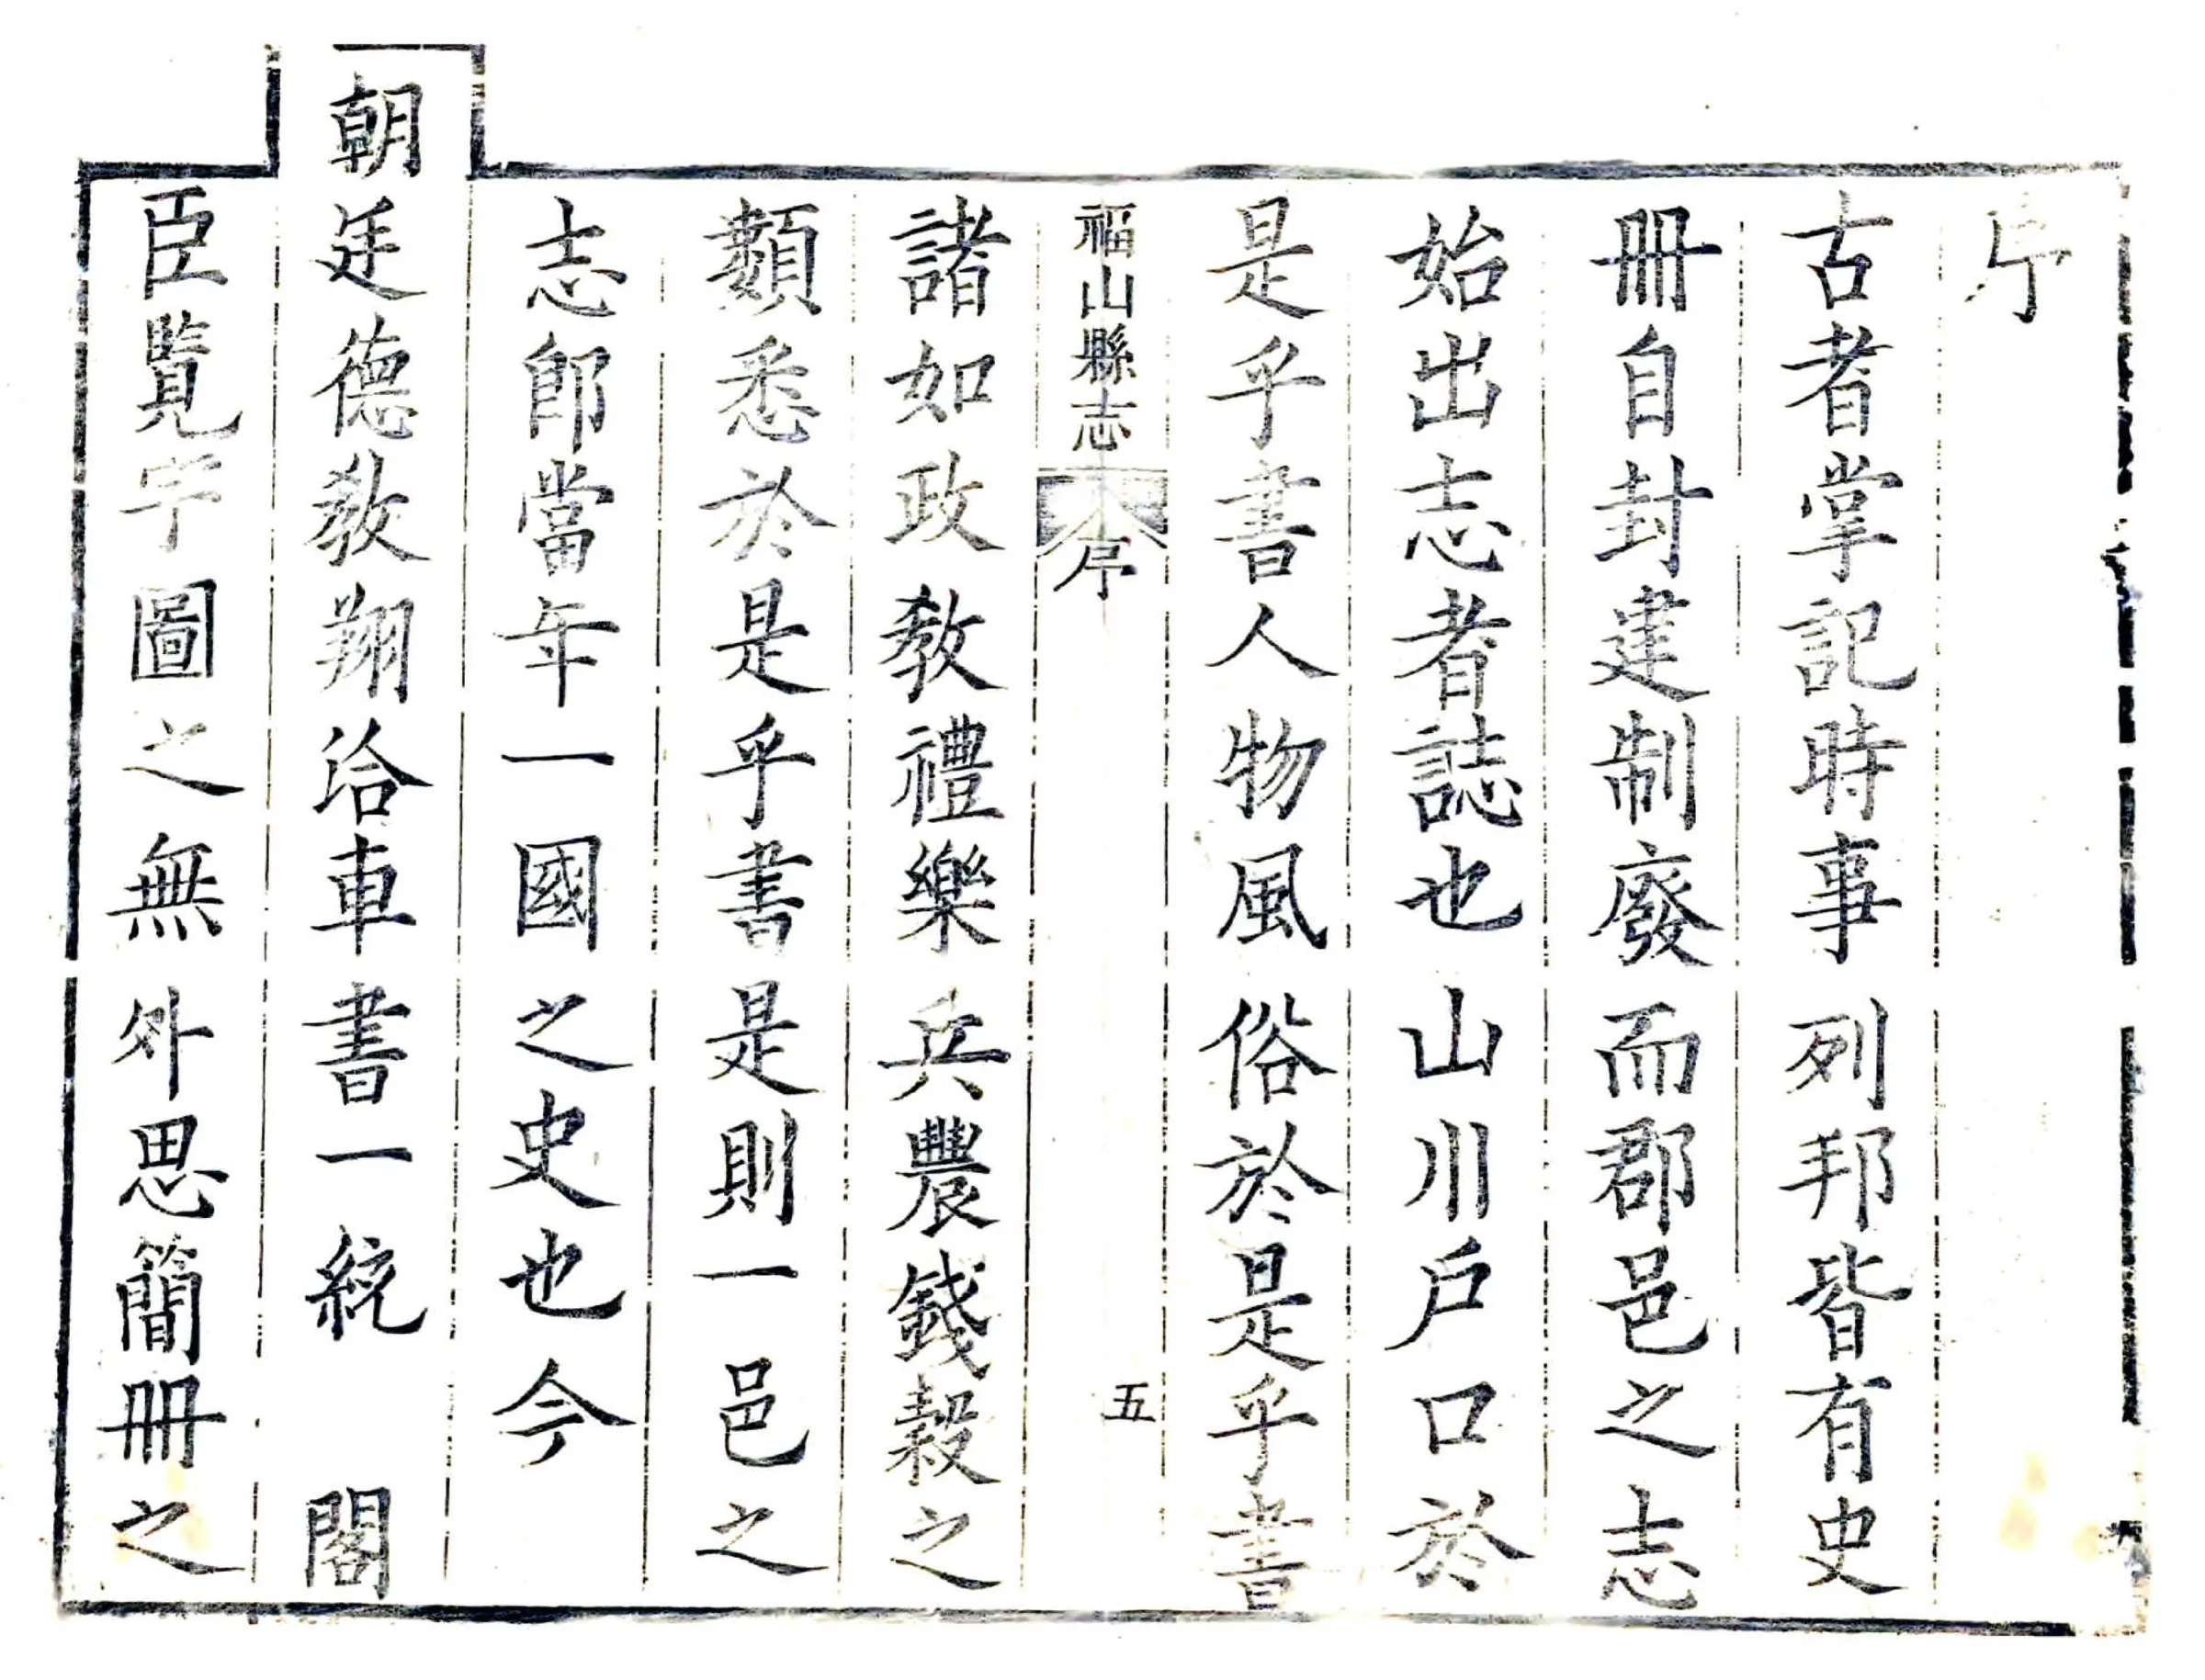 序
古者掌記時事列邦皆有史
冊自封建制廢而郡邑之志
始出志者誌也山川戶口於
是乎書人物風俗於是乎書
福山縣志 序 五
諸如政教禮樂兵農錢穀之
類悉於是乎書是則一邑之
志郎當年一國之史也今
朝廷德教翔洽車書一統 閣
臣覽宇圖之無外思簡冊之